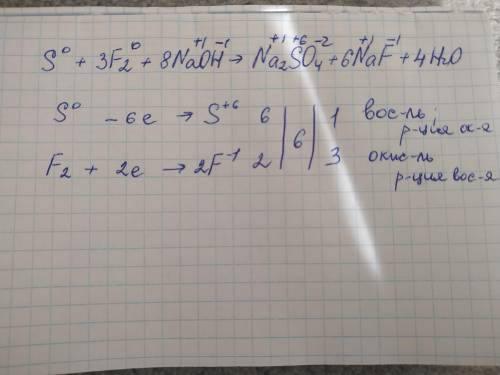 S⁰ + 3F₂⁰ + 8Na⁺¹OH⁻¹ → Na₂⁺¹S⁺⁶O₄⁻² + 6Na⁺¹F⁻¹ + 4H₂O
S⁰ - 6e → S⁺⁶ 6 | 6 | 1 вос-ль;
р-ция ок-я
F₂ + 2e → 2F⁻¹ 2 | | 3 окис-ль
р-ция вос-я